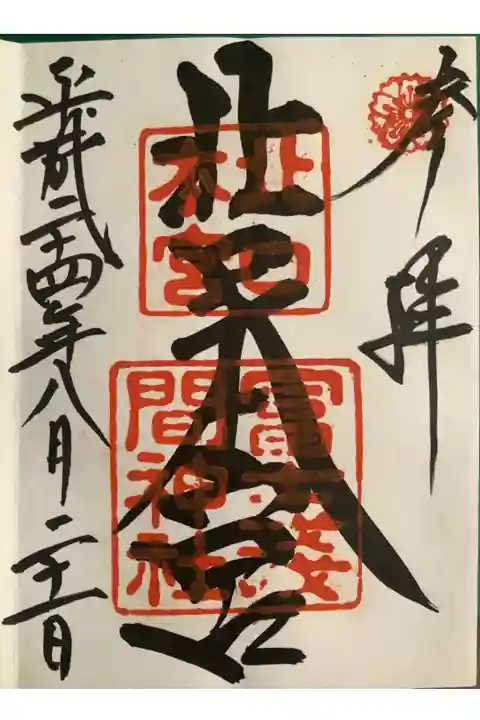 奉拝
北口本宮
北口本宮
冨士淺間神社
平成弍十四年八月二十一日